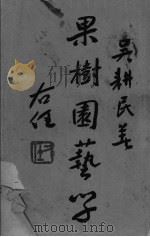 吴耕民著
果樹園藝学
右任